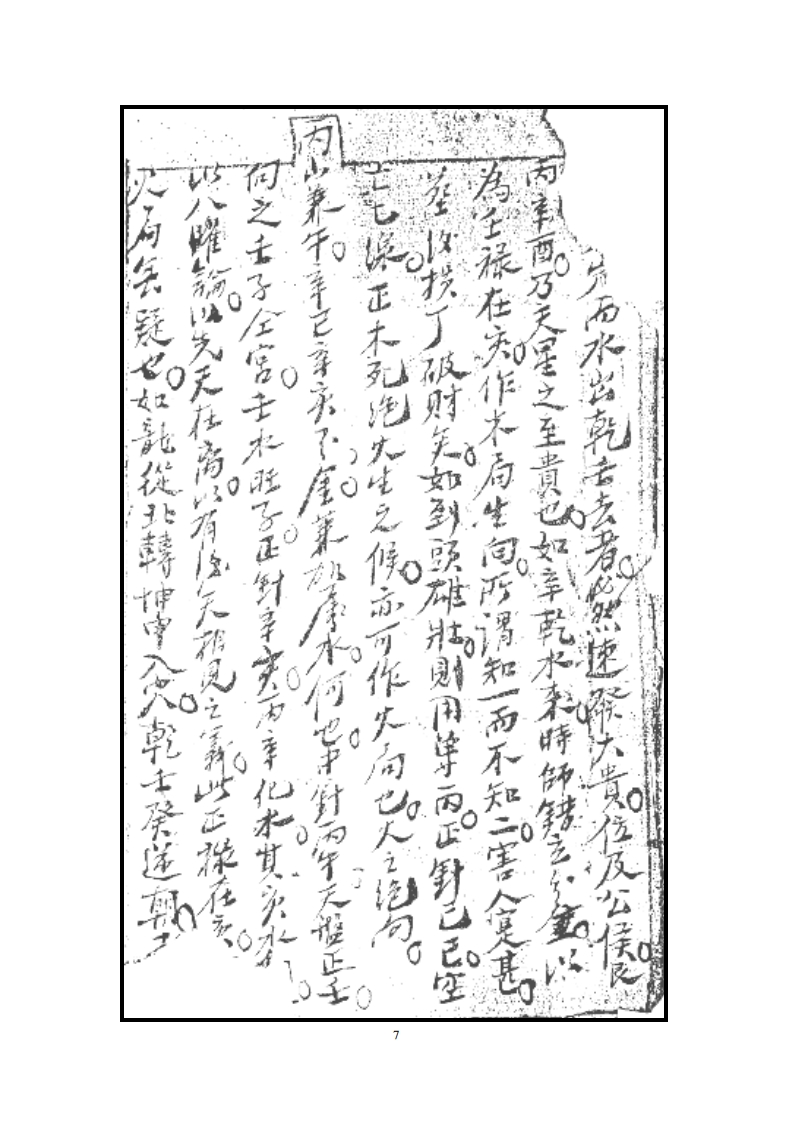 而水出乾壬去者必然速發大貴位及公侯艮
丙辛酉乃天星之至貴也如辛乾水來時師錯立分金以
為壬祿在亥作木局生向所謂知一而不知二害人寔甚
葬後損丁破財矣如到頭雄壯則用單丙正針己巳
正木死絕火生之候亦可作火局也火之絕向
丙山兼午辛巳辛亥分金兼加庚水何也中針丙午天盤正壬
向之壬子仝宮壬水旺子正針辛亥丙辛化水其亥水
以八曜論以先天在離以有後天相見之義此正祿在亥
火局無疑也如龍從北轉坤申入穴乾壬癸逆朝
7